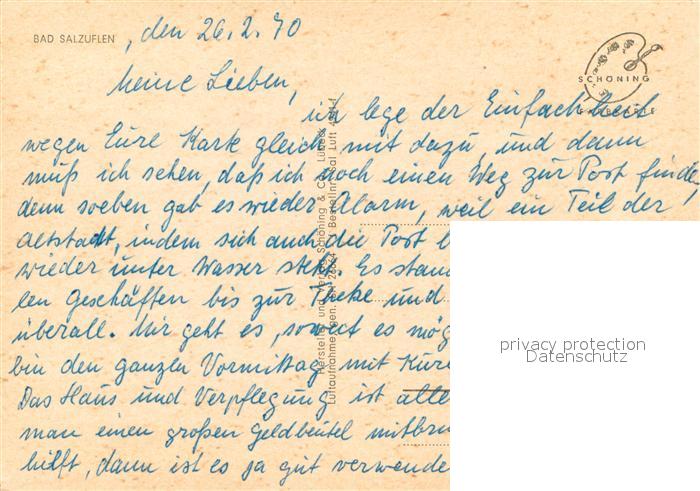 BAD SALZUFLEN, den 26.2.70
SCHÖNING
Meine Lieben,
ich lege der Einfachheit
wegen Eure Karte gleich mit dazu und dann
muß ich sehen, daß ich noch einen Weg zur Post finde,
denn soeben gab es wieder Alarm, weil ein Teil der
Altstadt, indem sich auch die Post b
wieder unter Wasser steht. Es stan
len Geschäften bis zur Theke und
überall. Mir geht es, soweit es mög
bin den ganzen Vormittag mit Kure
Das Haus und Verpflegung ist alle
man einen großen Geldbeutel mitbrin
hilft, dann ist es ja gut verwende
Schöning & Co
privacy protection
Datenschutz